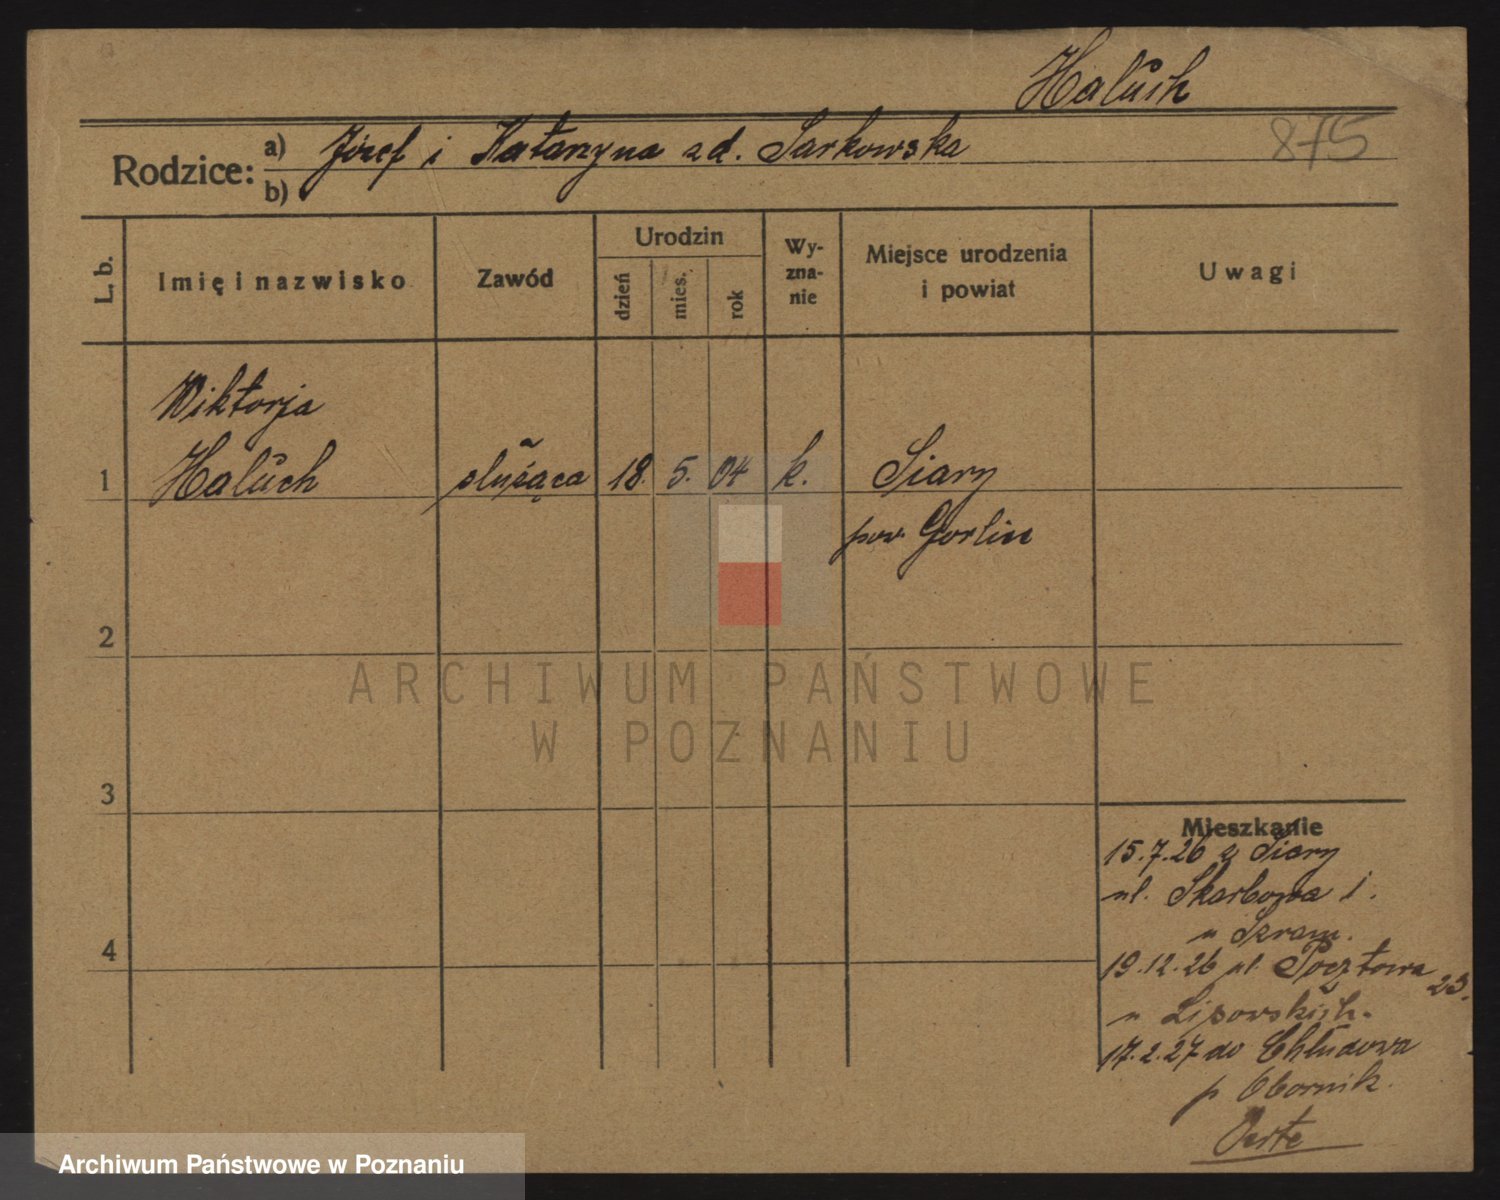 Haluch
875
Rodzice:
a) Józef i Katarzyna zd. Sarkowska
b)
L. b.
Imię i nazwisko
Zawód
Urodzin
dzień
mies.
rok
Wy-
zna-
nie
Miejsce urodzenia
i powiat
Uwagi
Wiktorja
1 Haluch służąca 18. 5. 04 k. Siary
pow. Gorlice
2
3
4
Mieszkanie
15.7.26 z Siary
ul. Skarbowa 1.
u Szram.
19.12.26 ul. Pocztowa 23.
u Lipowskich.
17.2.27 do Chludowa
p Obornik.
ARCHIWUM PAŃSTWOWE
W POZNANIU
Archiwum Państwowe w Poznaniu